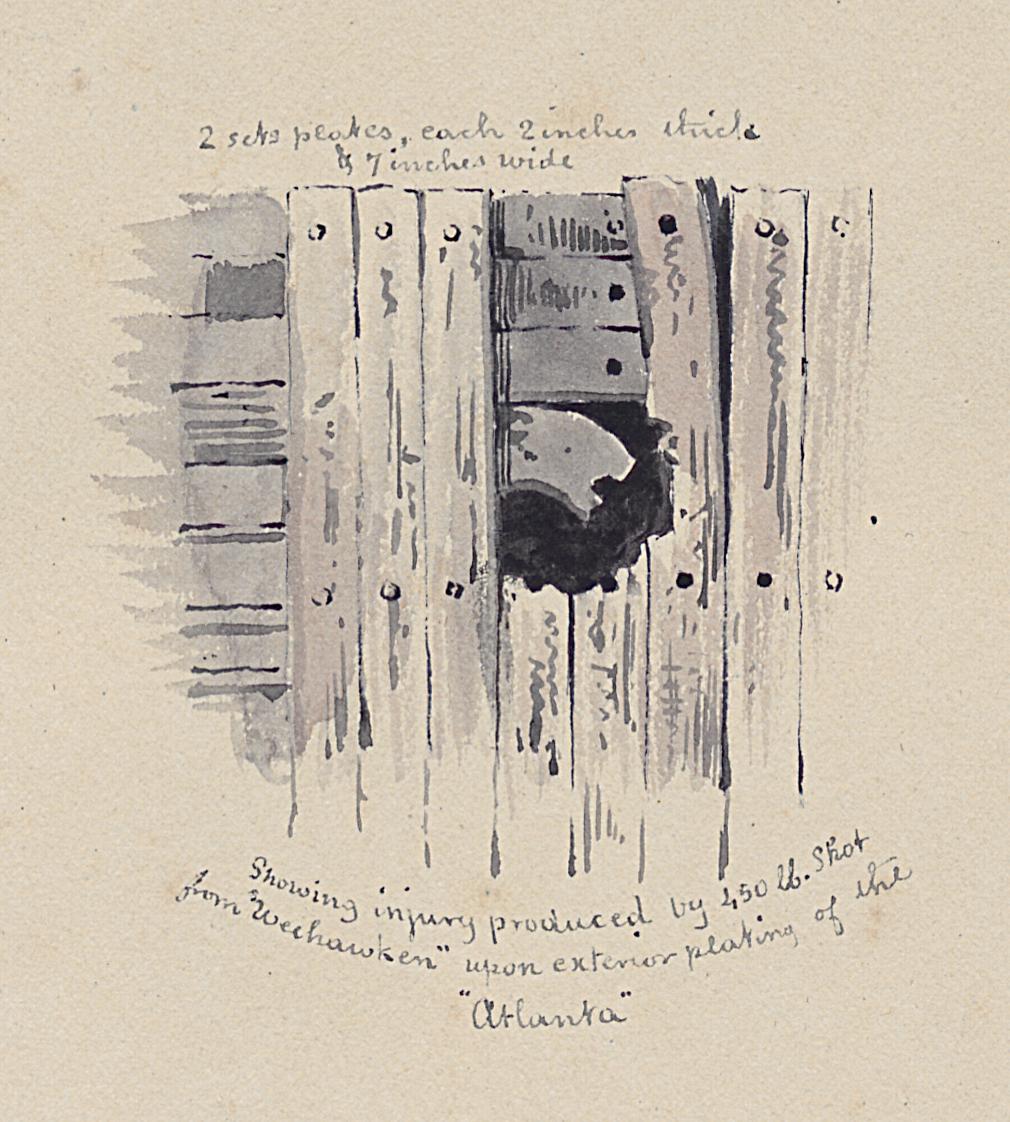 2 sets plates, each 2 inches thick
& 7 inches wide
Showing injury produced by 450 lb. Shot
from "Weehawken" upon exterior plating of the
"Atlanta"